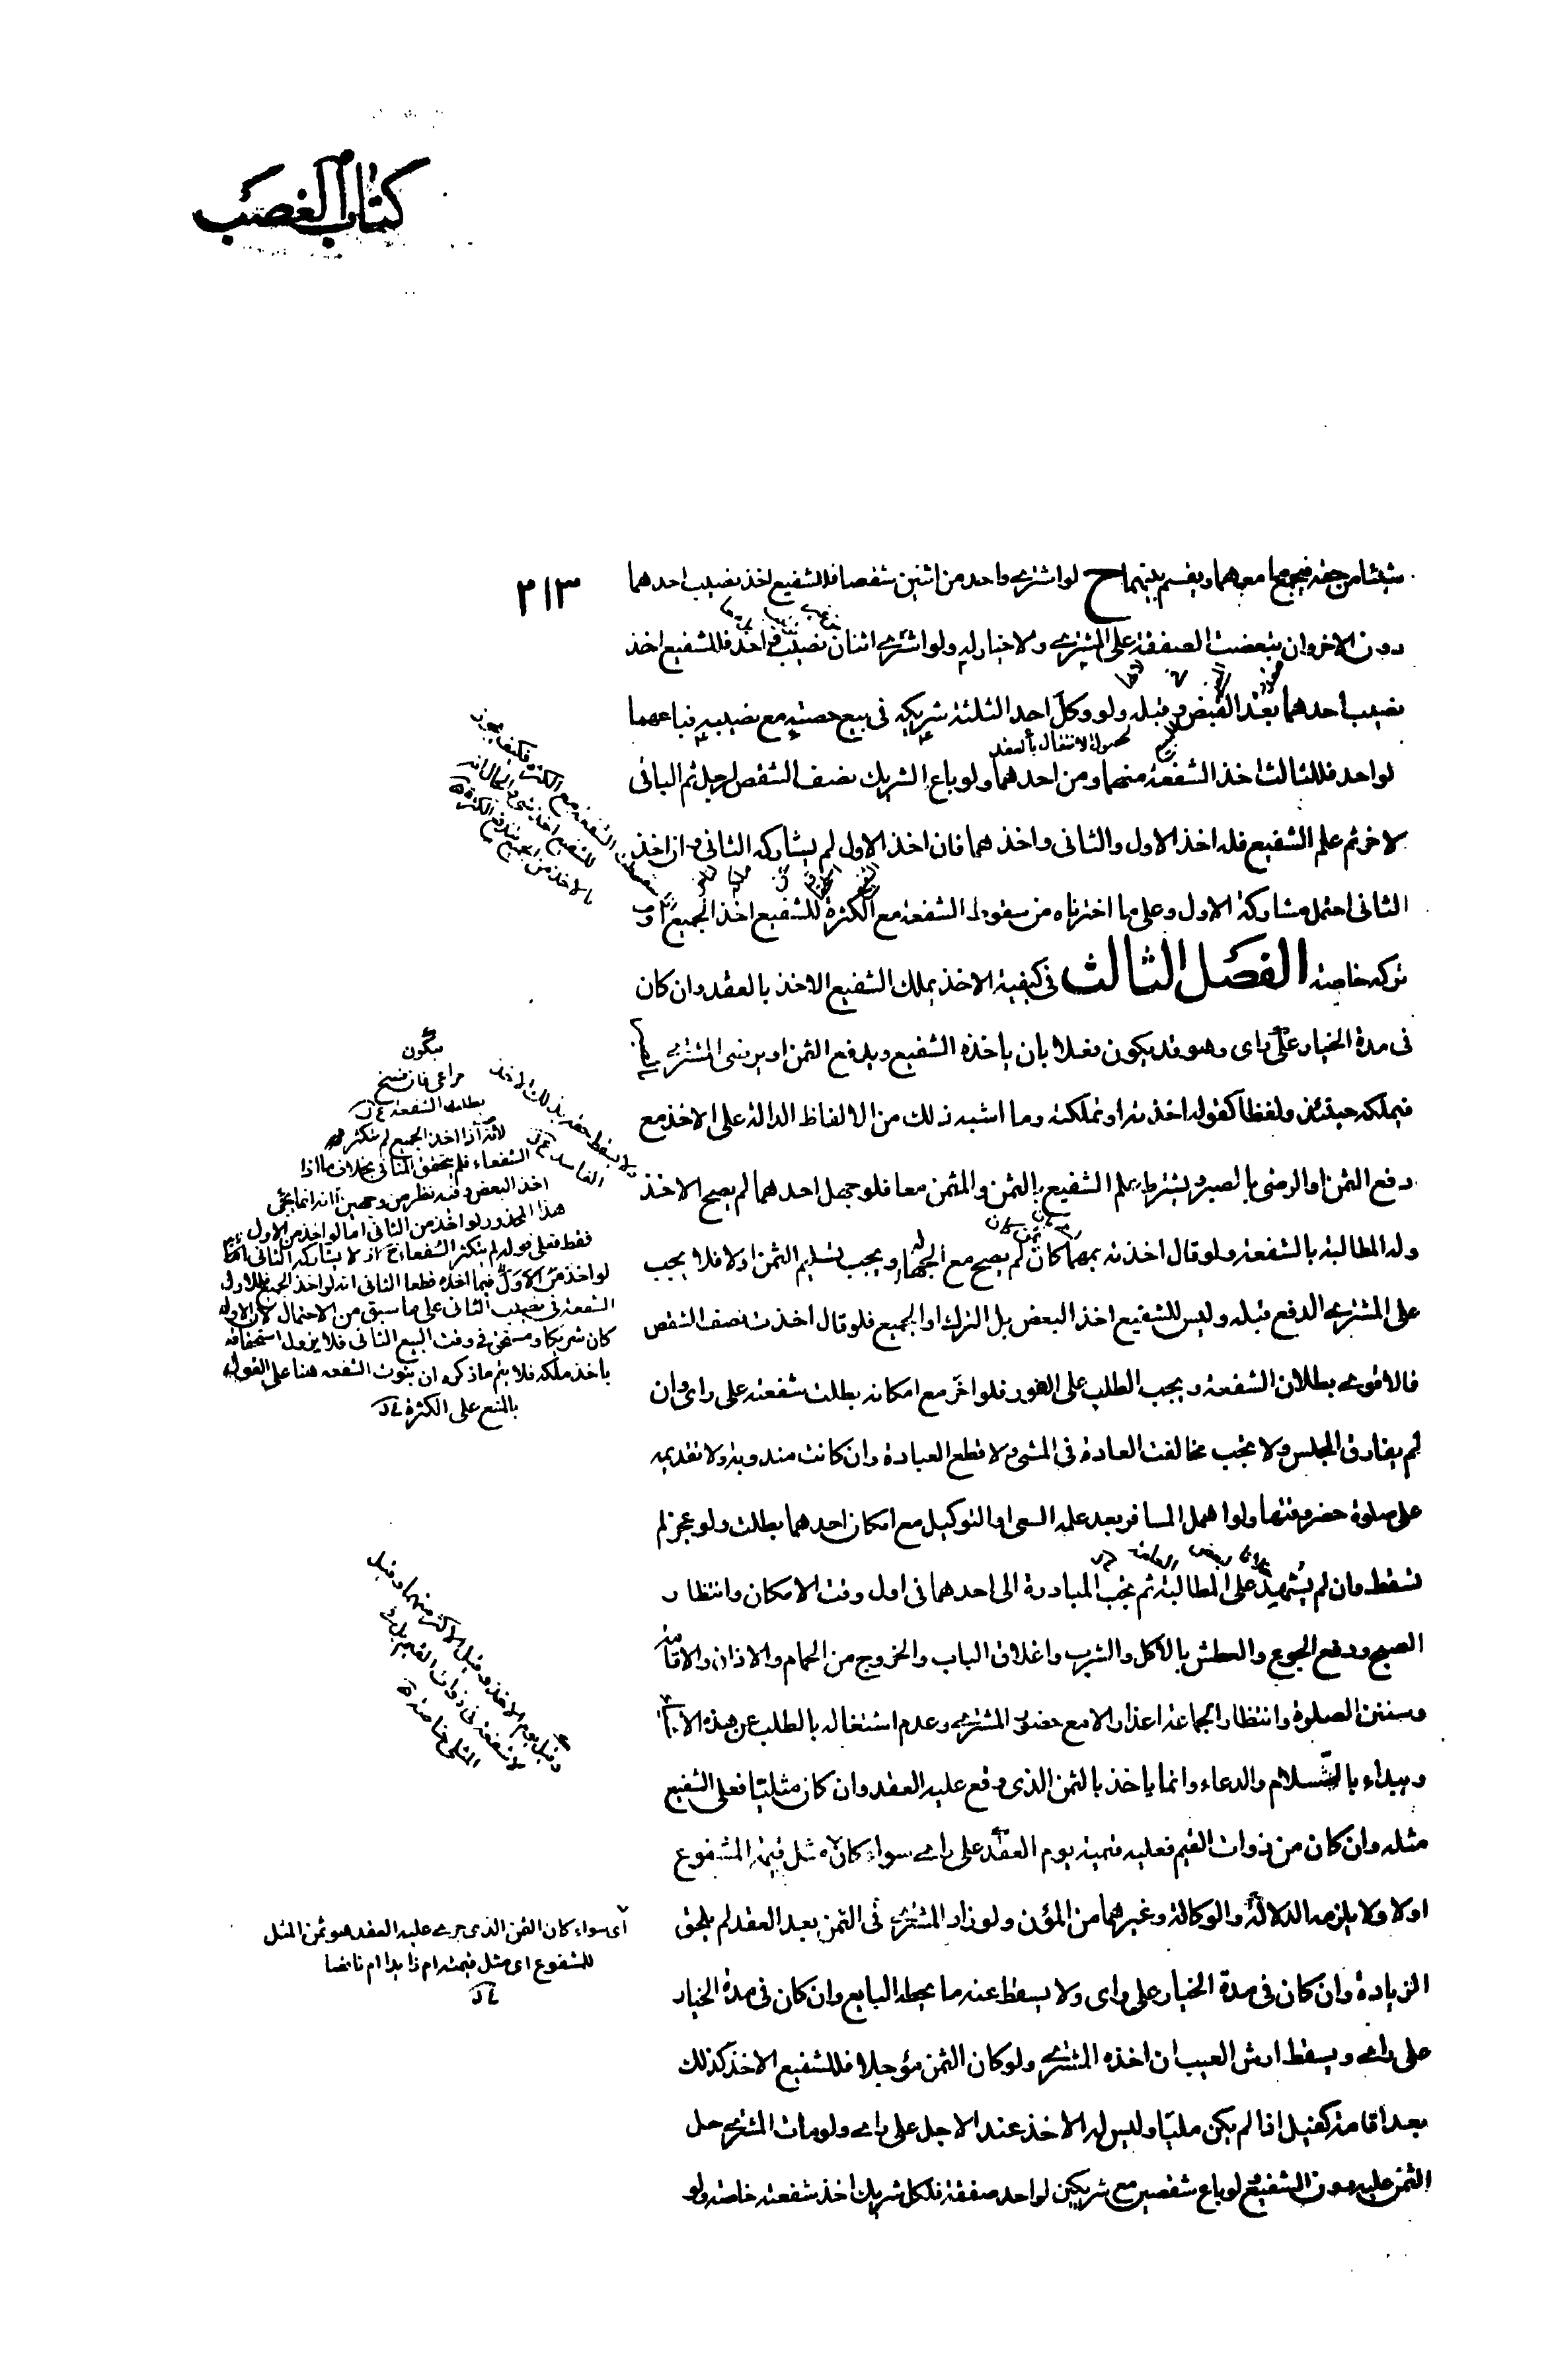 كتاب الغصب
٢١٣
شيئا من حقه فيجمع مامعهما ويقسم بينهما ح لو اشترى واحد من اثنين شقصا فللشفيع اخذ نصيب احدهما
دون الاخر وان تبعضت الصفقة على المشترى ولا خيار له ولو اشترى اثنان نصيب واحد فللشفيع اخذ
نصيب احدهما بعد القبض وقبله ولو وكل احد الثلثة شريكه فى بيع حصته مع نصيبه فباعهما
لواحد فللثالث اخذ الشفعة منهما ومن احدهما ولو باع الشريك نصف الشقص لرجل ثم الباقى
لاخر ثم علم الشفيع فله اخذ الاول والثانى واخذ هما فان اخذ الاول لم يشاركه الثانى وان اخذ
الثانى احتمل مشاركة الاول وعلى ما اخترناه من سقوط الشفعة مع الكثرة للشفيع اخذ الجميع او
تركه خاصة الفصل الثالث فى كيفية الاخذ يملك الشفيع الاخذ بالعقد وان كان
فى مدة الخيار على راى وهو قد يكون فعلا بان ياخذه الشفيع ويدفع الثمن او يرضى المشترى
فيملكه حينئذ ولفظا كقوله اخذته او تملكته وما اشبه ذلك من الالفاظ الدالة على الاخذ مع
دفع الثمن او الرضى بالصبر ويشترط علم الشفيع بالثمن والمثمن معا فلو جهل احدهما لم يصح الاخذ
وله المطالبة بالشفعة ولو قال اخذته بمهما كان لم يصح مع الجهالة ويجب تسليم الثمن اولا فلا يجب
على المشترى الدفع قبله وليس للشفيع اخذ البعض بل الترك او الجميع فلو قال اخذت نصف الشقص
فالاقوى بطلان الشفعة ويجب الطلب على الفور فلو اخر مع امكانه بطلت شفعته على راى وان
لم يفارق المجلس ولا تجب مخالفت العادة فى المشى ولا قطع العبادة وان كانت مندوبة ولا تقديمه
على صلوة حضر وقتها ولو اهمل المسافر بعد علمه السعى او التوكيل مع امكان احدهما بطلت ولو عجز لم
تسقط وان لم يشهد على المطالبة ثم تجب المبادرة الى احدهما فى اول وقت الامكان وانتظار
الصبح ودفع الجوع والعطش بالاكل والشرب واغلاق الباب والخروج من الحمام والاذان والاقامة
وسنن الصلوة وانتظار الجماعة اعذار الا مع حضور المشترى وعدم اشتغاله بالطلب عن هذه الاشياء
ويبداء بالسلام والدعاء وانما ياخذ بالثمن الذى وقع عليه العقد وان كان مثليا فعلى الشفيع
مثله وان كان من ذوات القيم فعليه قيمته يوم العقد على راى سواء كان مثل قيمة المشفوع
اولا ولا يلزمه الدلالة والوكالة وغيرهما من المؤن ولو زاد المشترى فى الثمن بعد العقد لم يلحق
الزيادة وان كان فى مدة الخيار على راى ولا يسقط عنه ما يحطه البايع وان كان فى مدة الخيار
على راى ويسقط ارش العيب ان اخذه المشترى ولو كان الثمن مؤجلا فللشفيع الاخذ كذلك
بعد اقامة كفيل اذا لم يكن مليا وليس له الاخذ عند الاجل على راى ولو مات المشترى حل
الثمن عليه دون الشفيع لو باع شقصين مع شريكين لواحد صفقة فلكل شريك اخذ شفعته خاصة ولو
لحصول الانتقال بالعقد
فيكون
مراعى فان فسخ
بطلت الشفعة
لانه اذا اخذ الجميع لم يتكثر
الشفعاء فلم يتحقق المنافى بخلاف ما اذا
اخذ البعض وفيه نظر من وجهين انه انما يجئ
هذا المحذور لو اخذ من الثانى اما لو اخذ من الاول
فقط فعلى قوله لم يتكثر الشفعاء اذ لا يشاركه الثانى
لو اخذ من الاول فيما اخذه قطعا الثانى انه لو اخذ الجميع فللاول
الشفعة فى نصيب الثانى على ما سبق من الاحتمال لان الاول
كان شريكا ومستحق فى وقت البيع الثانى فلا يزول استحقاقه
باخذ ملكه فلا يتم ما ذكره ان بثوت الشفعه هنا على القول
بالمنع على الكثرة
اى سواء كان الثمن الذى جرى عليه العقد هو ثمن المثل
للمشفوع اى مثل قيمته ام زايدا ام ناقصا